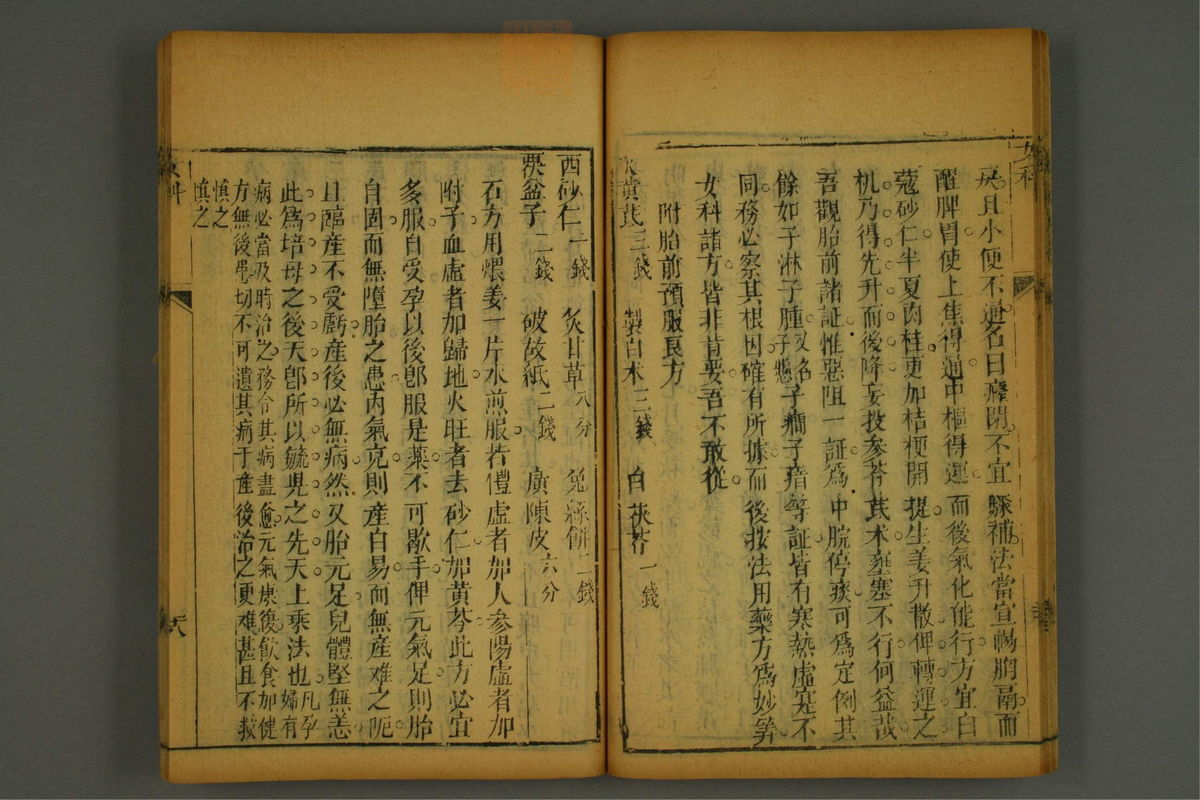 女科
兵且小便不通名曰癃閉不宜驟補法當宣暢胸鬲而
醒脾胃使上焦得通中樞得運而後氣化能行方宜白
蔻砂仁半夏肉桂更加桔梗開提生姜升散俾轉運之
机乃得先升而後降妄投参苓芪术壅塞不行何益哉
吾觀胎前諸証惟惡阻一証為中脘停痰可爲定例其
餘如子淋子腫又名子懸子癎子瘖等証皆有寒熱虛寔不
同務必察其根因確有所據而後按法用藥方爲妙筭
女科諸方皆非肯要吾不敢從
附胎前預服良方
黃芪三錢 製白术三錢 白茯苓一錢
西砂仁一錢 炙甘草八分 兔絲餅二錢
覆盆子二錢 破故紙二錢 廣陳皮六分
右方用煨姜一片水煎服若體虛者加人参陽虛者加
附子血虛者加歸地火旺者去砂仁加黄芩此方必宜
多服自受孕以後卽服是藥不可歇手俾元氣足則胎
自固而無墮胎之患內氣充則產自易而無產难之阨
且臨産不受虧産後必無病然又胎元足兒體堅無恙
此爲培母之後天卽所以毓児之先天上乘法也凡孕婦有
病必當及時治之務令其病盡愈元氣康復飲食加健
方無後患切不可遺其病于産後治之更难甚且不救
慎之慎之
女科